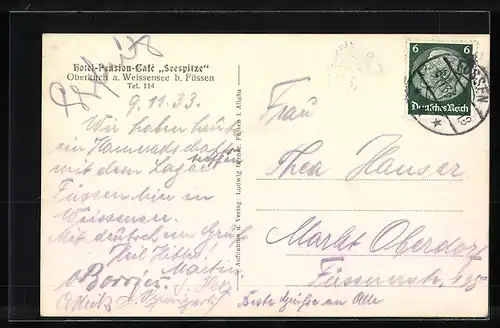 Hotel-Pension-Café „Seespitze“
Oberkirch a. Weissensee b. Füssen
Tel. 114
9.11.33.
Wir haben heute
ein Kameradschafts
treffen
mit dem Lager
Füssen hier in
Weissensee.
Mit deutschem Gruß
Heil Hitler!
Martin
Beste Grüße an Alle
Aufnahme u. Verlag: Ludwig
Füssen i. Allgäu
6 6
Deutsches Reich
FÜSSEN
Frau
Thea Hauser
Markt Oberdorf
Füssenerstr.